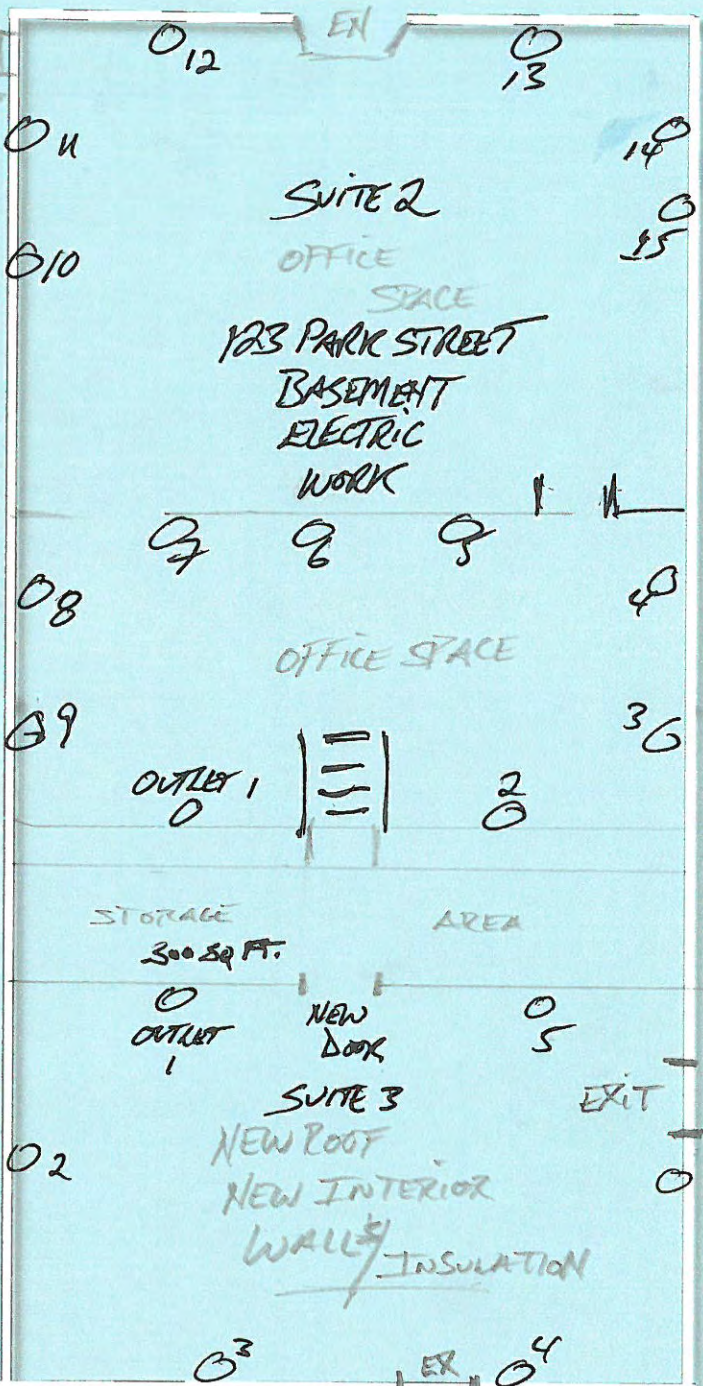 EN
12
13
11
14
SUITE 2
15
10
OFFICE
SPACE
123 PARK STREET
BASEMENT
ELECTRIC
WORK
7
6
5
8
4
OFFICE SPACE
9
3
OUTLET 1
2
STORAGE AREA
300 SQ FT.
OUTLET
1
NEW
DOOR
5
SUITE 3
EXIT
2
NEW ROOF
NEW INTERIOR
WALLS/
INSULATION
3
EX
4